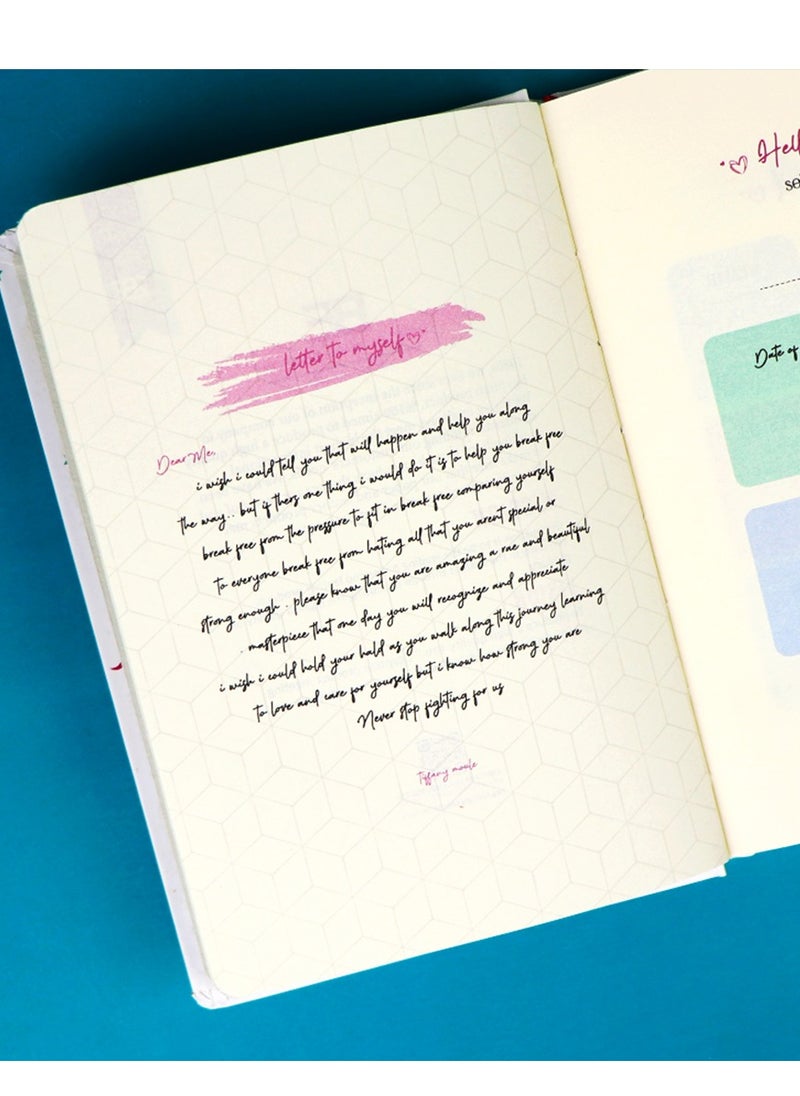 letter to myself
Dear Me,
i wish i could tell you that will happen and help you along
the way.. but if thers one thing i would do it is to help you break free
break free from the pressure to fit in break free comparing yourself
to everyone break free from hating all that you arent special or
strong enough . please know that you are amazing a rae and beautiful
. masterpiece that one day you will recognize and appreciate
i wish i could hold your hald as you walk along this journey learning
to love and care for yourself but i know how strong you are
Never stop fighting for us
tiffany moule
Hell
se
Date of